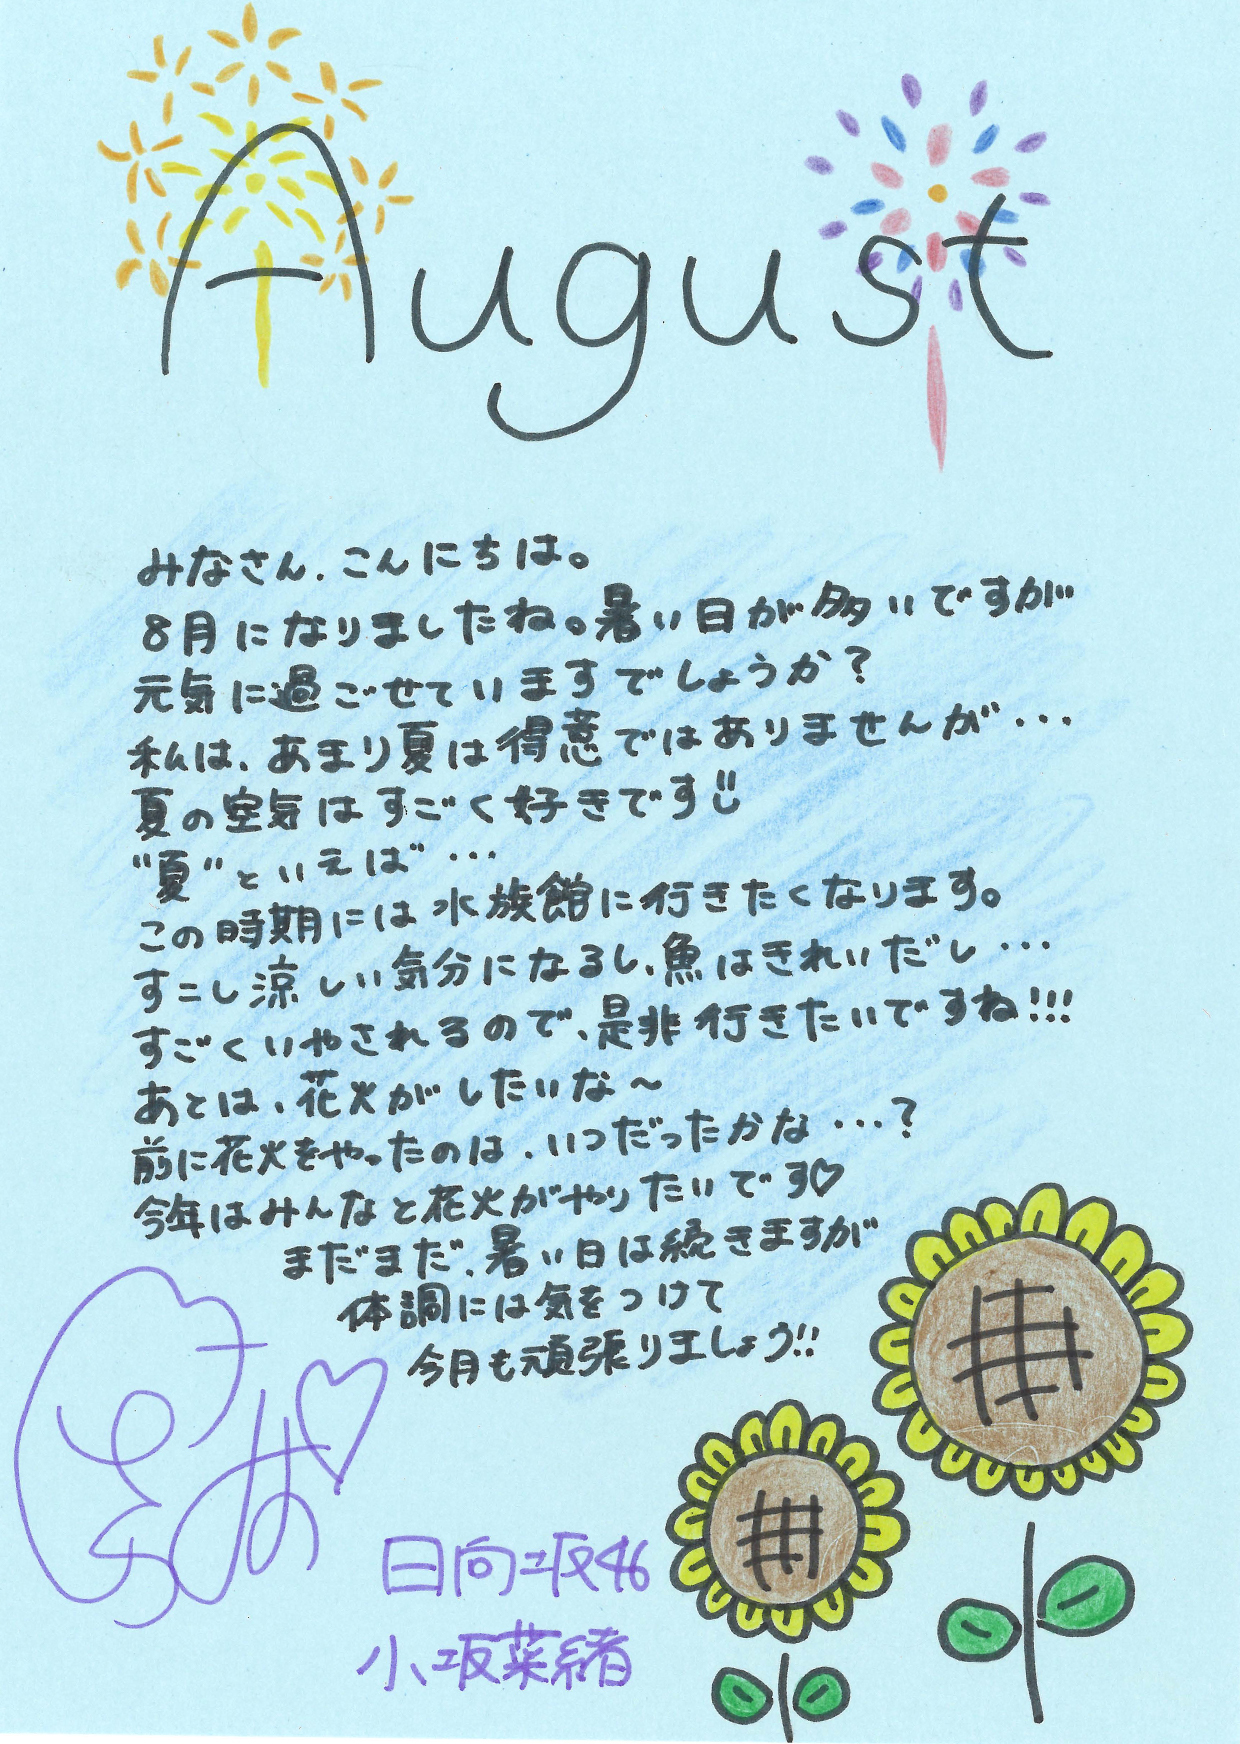 August
みなさん、こんにちは。
8月になりましたね。暑い日が多いですが
元気に過ごせていますでしょうか？
私は、あまり夏は得意ではありませんが…
夏の空気はすごく好きです
"夏"といえば…
この時期には水族館に行きたくなります。
すこし涼しい気分になるし、魚はきれいだし…
すごくいやされるので、是非行きたいですね!!!
あとは、花火がしたいな～
前に花火をやったのは、いつだったかな…？
今年はみんなと花火がやりたいです♡
まだまだ、暑い日は続きますが
体調には気をつけて
今月も頑張りましょう!!
日向坂46
小坂菜緒